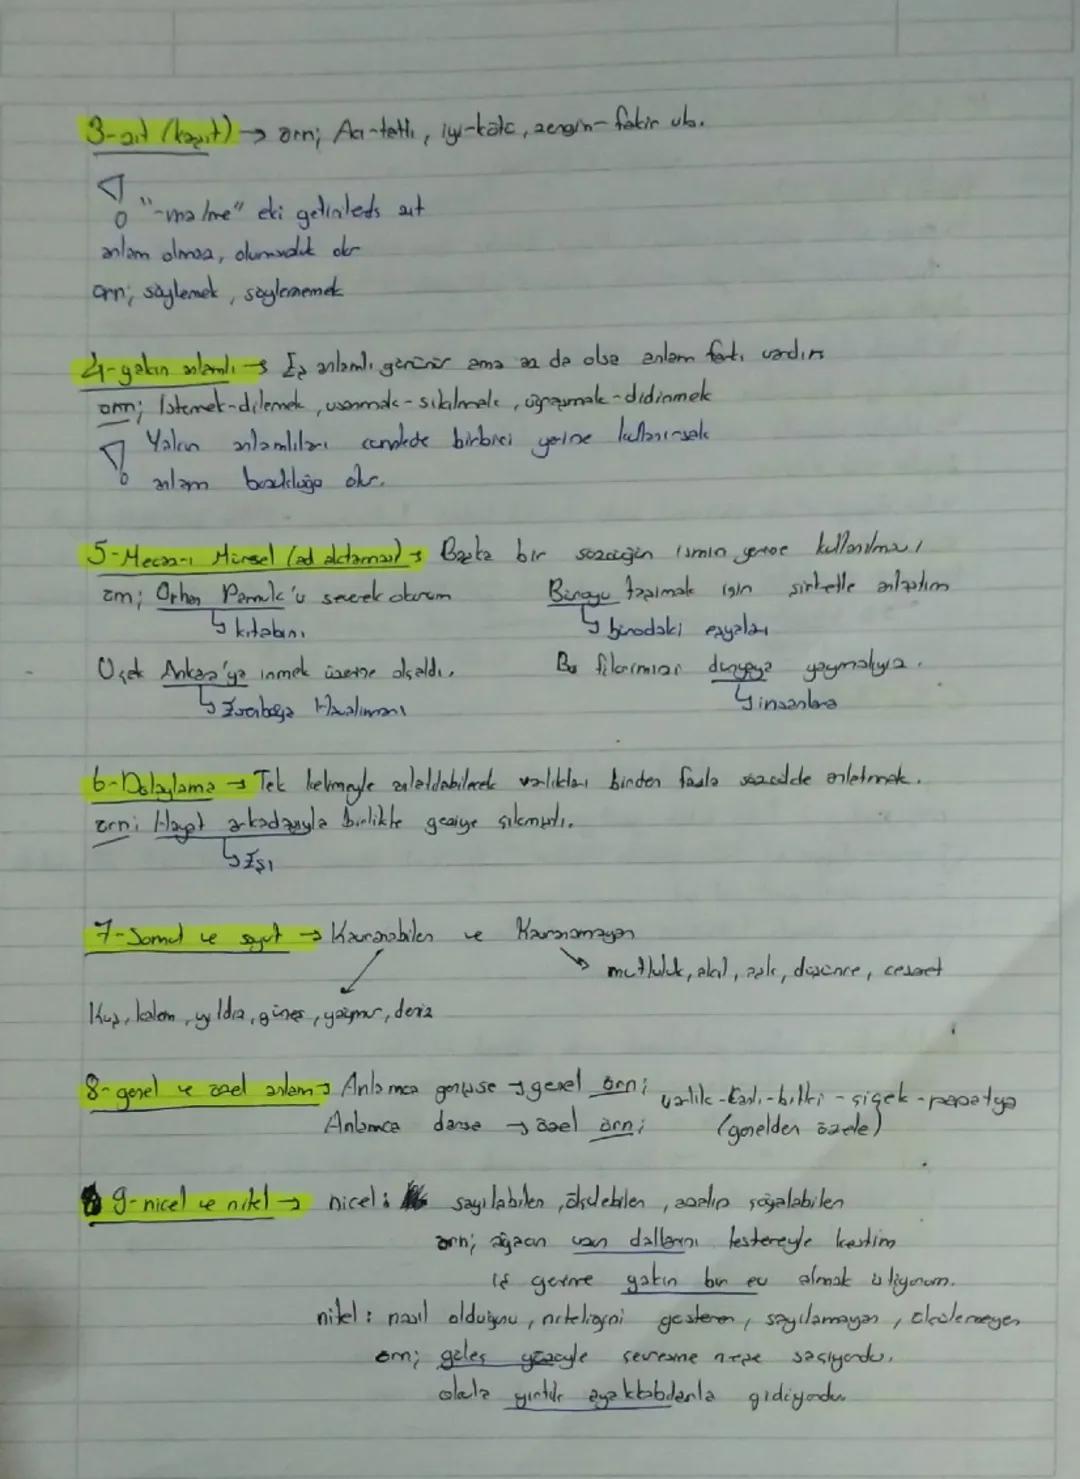 3-zıt (karşıt) → örn; Acı-tatlı, iyi-kötü, zengin-fakir vb.
! "-ma/me" eki getirilerek zıt
anlam olmaz, olumsuzluk olur
örn; söylemek, söylememek
4-yakın anlamlı → Eş anlamlı görünür ama az da olsa anlam farkı vardır
örn; İstemek-dilemek, usanmak-sıkılmak, uğraşmak-didinmek
! Yakın anlamlıları cümlede birbiri yerine kullanırsak
anlam bozukluğu olur.
5-Mecaz-ı Mürsel (ad aktarması) → Başka bir sözcüğün ismin yerine kullanılması
örn; Orhan Pamuk'u severek okurum
↳ kitabını
Binayı taşımak için şirketle anlaştım
↳ binadaki eşyaları
Uçak Ankara'ya inmek üzere alçaldı.
↳ Esenboğa Havalimanı
Bu fikrimizi dünyaya yaymalıyız.
↳ insanlara
6-Dolaylama → Tek kelimeyle anlatılabilecek varlıkları birden fazla sözcükle anlatmak.
örn; Hayat arkadaşıyla birlikte geziye çıkmıştı.
↳ Eşi
7-Somut ve soyut → Kavranabilen ve Kavranamayan
mutluluk, akıl, aşk, düşünce, cesaret
Kuş, kalem, yıldız, güneş, yağmur, deniz
8-genel ve özel anlam → Anlamca genişse → genel örn; varlık-canlı-bitki-çiçek-papatya
Anlamca darsa → özel örn; (genelden özele)
9-nicel ve nitel → nicel: sayılabilen, ölçülebilen, azalıp çoğalabilen
örn; ağacın uzun dallarını testereyle kestim
iş yerime yakın bir ev almak istiyorum.
nitel: nasıl olduğunu, niteliğini gösteren, sayılamayan, ölçülemeyen
örn; güleç yüzüyle çevresine neşe saçıyordu.
okula yırtık ayakkabılarla gidiyordu.